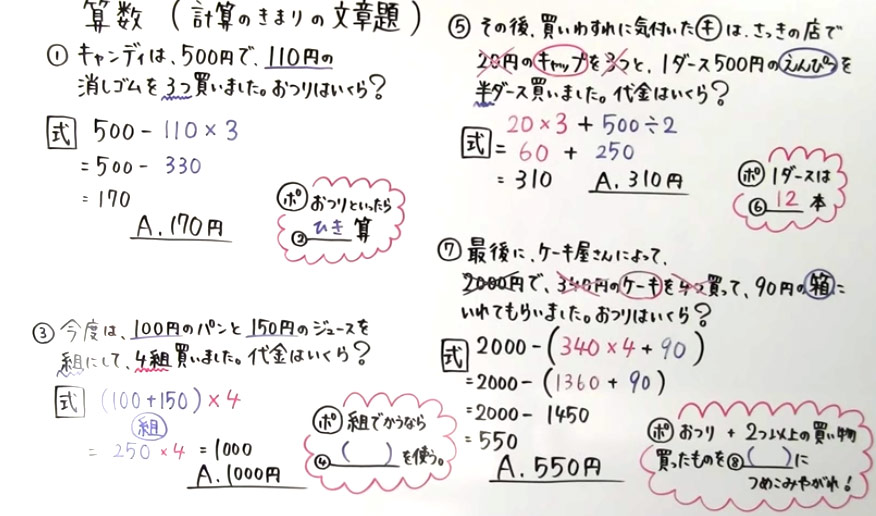 算数 (計算のきまりの文章題)
① キャンディは、500円で、110円の
消しゴムを3つ買いました。おつりはいくら?
式 500 - 110 × 3
= 500 - 330
= 170
A. 170円
ポ おつりといったら
② ひき 算
③ 今度は、100円のパンと150円のジュースを
組にして、4組買いました。代金はいくら?
式 (100+150)×4
組
= 250 × 4 = 1000
A. 1000円
ポ 組でかうなら
④ ( ) を使う。
⑤ その後、買いわすれに気付いたキは、さっきの店で
20円のキャップを3つと、1ダース500円のえんぴつを
半ダース買いました。代金はいくら?
式 20×3 + 500÷2
= 60 + 250
= 310 A. 310円
ポ 1ダースは
⑥ 12 本
⑦ 最後に、ケーキ屋さんによって、
2000円で、340円のケーキを4つ買って、90円の箱に
いれてもらいました。おつりはいくら?
式 2000-(340×4+90)
=2000-(1360+90)
=2000- 1450
=550
A. 550円
ポ おつり + 2つ以上の買い物
買ったものを⑧( )に
つめこみやがれ!